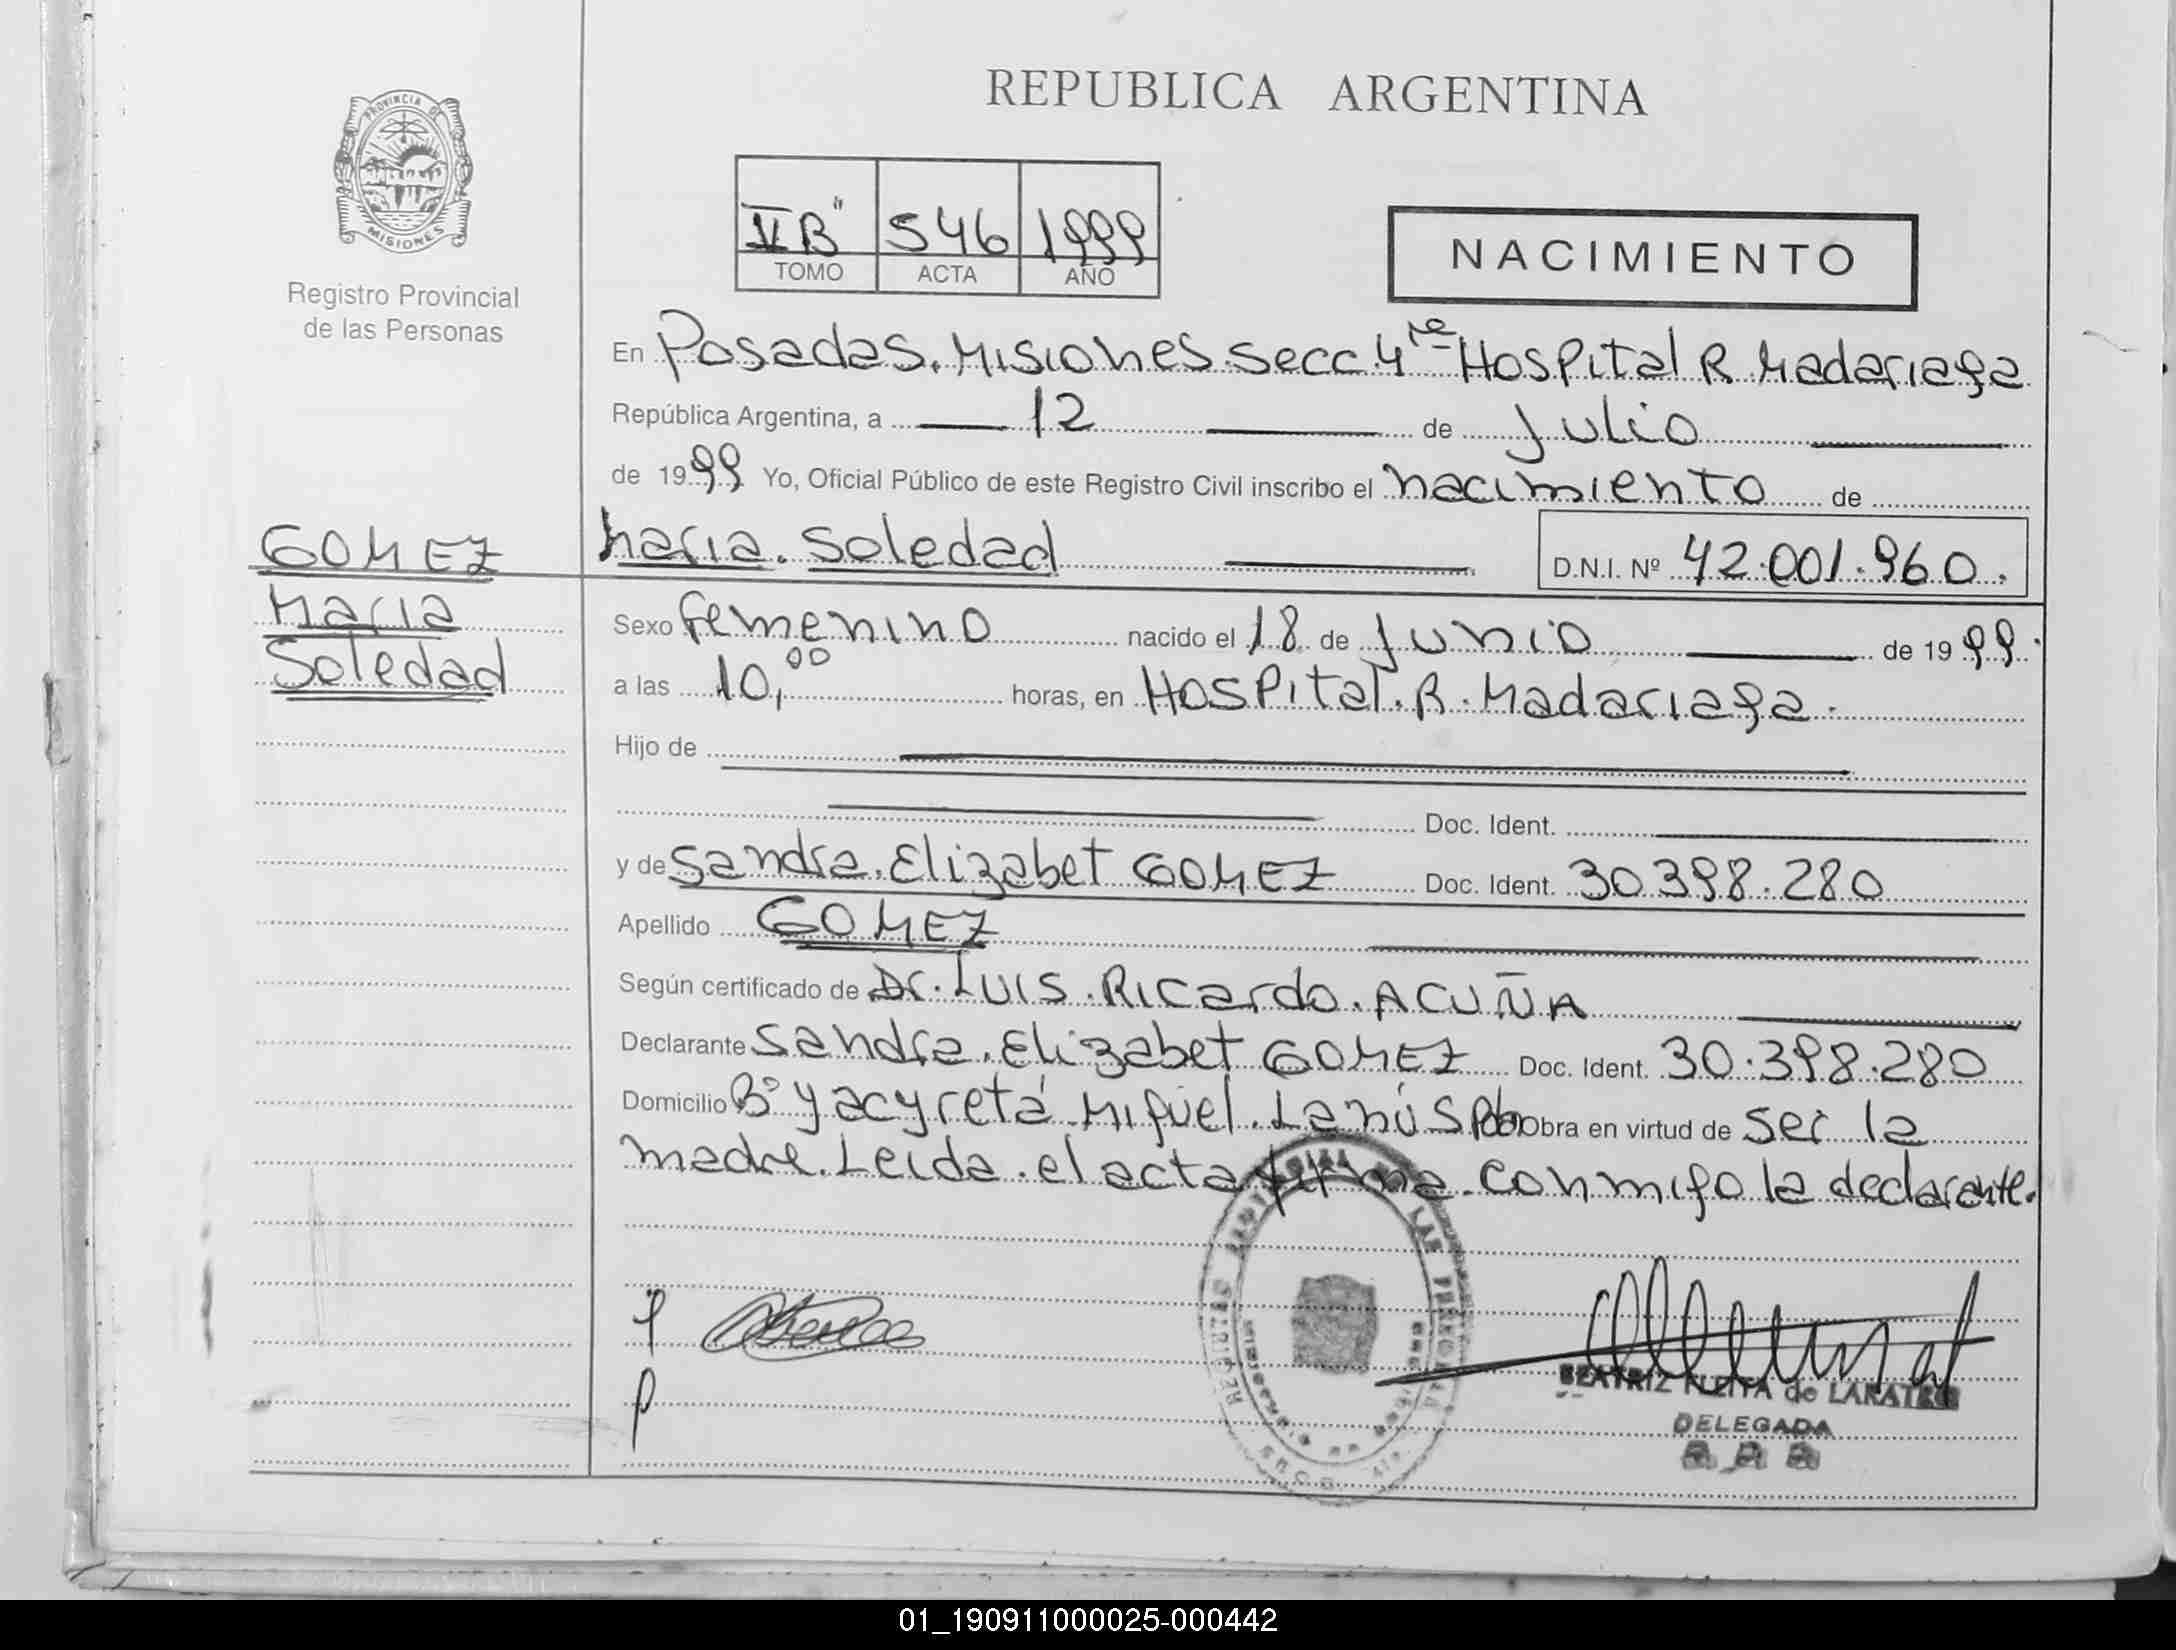 REPUBLICA ARGENTINA
PROVINCIA DE
MISIONES
Registro Provincial
de las Personas
V B" 546 1999
TOMO ACTA AÑO
NACIMIENTO
En Posadas. Misiones. Secc. 4ta Hospital R. Madariaga
República Argentina, a 12 de Julio
de 1999 Yo, Oficial Público de este Registro Civil inscribo el nacimiento de
Maria. Soledad D.N.I. Nº 42.001.960.
GOMEZ
Maria
Soledad
Sexo femenino nacido el 18 de Junio de 1999.
a las 10,00 horas, en Hospital. R. Madariaga.
Hijo de
Doc. Ident.
y de Sandra. Elizabet GOMEZ Doc. Ident. 30.398.280
Apellido GOMEZ
Según certificado de Dr. Luis. Ricardo. ACUÑA
Declarante Sandra. Elizabet GOMEZ Doc. Ident. 30.398.280
Domicilio Bº Yacyretá Miguel. Lanús Obra en virtud de ser la
madre. Leida. el acta firma. conmigo la declarante.
BEATRIZ FLEITA de
DELEGADA
01_190911000025-000442